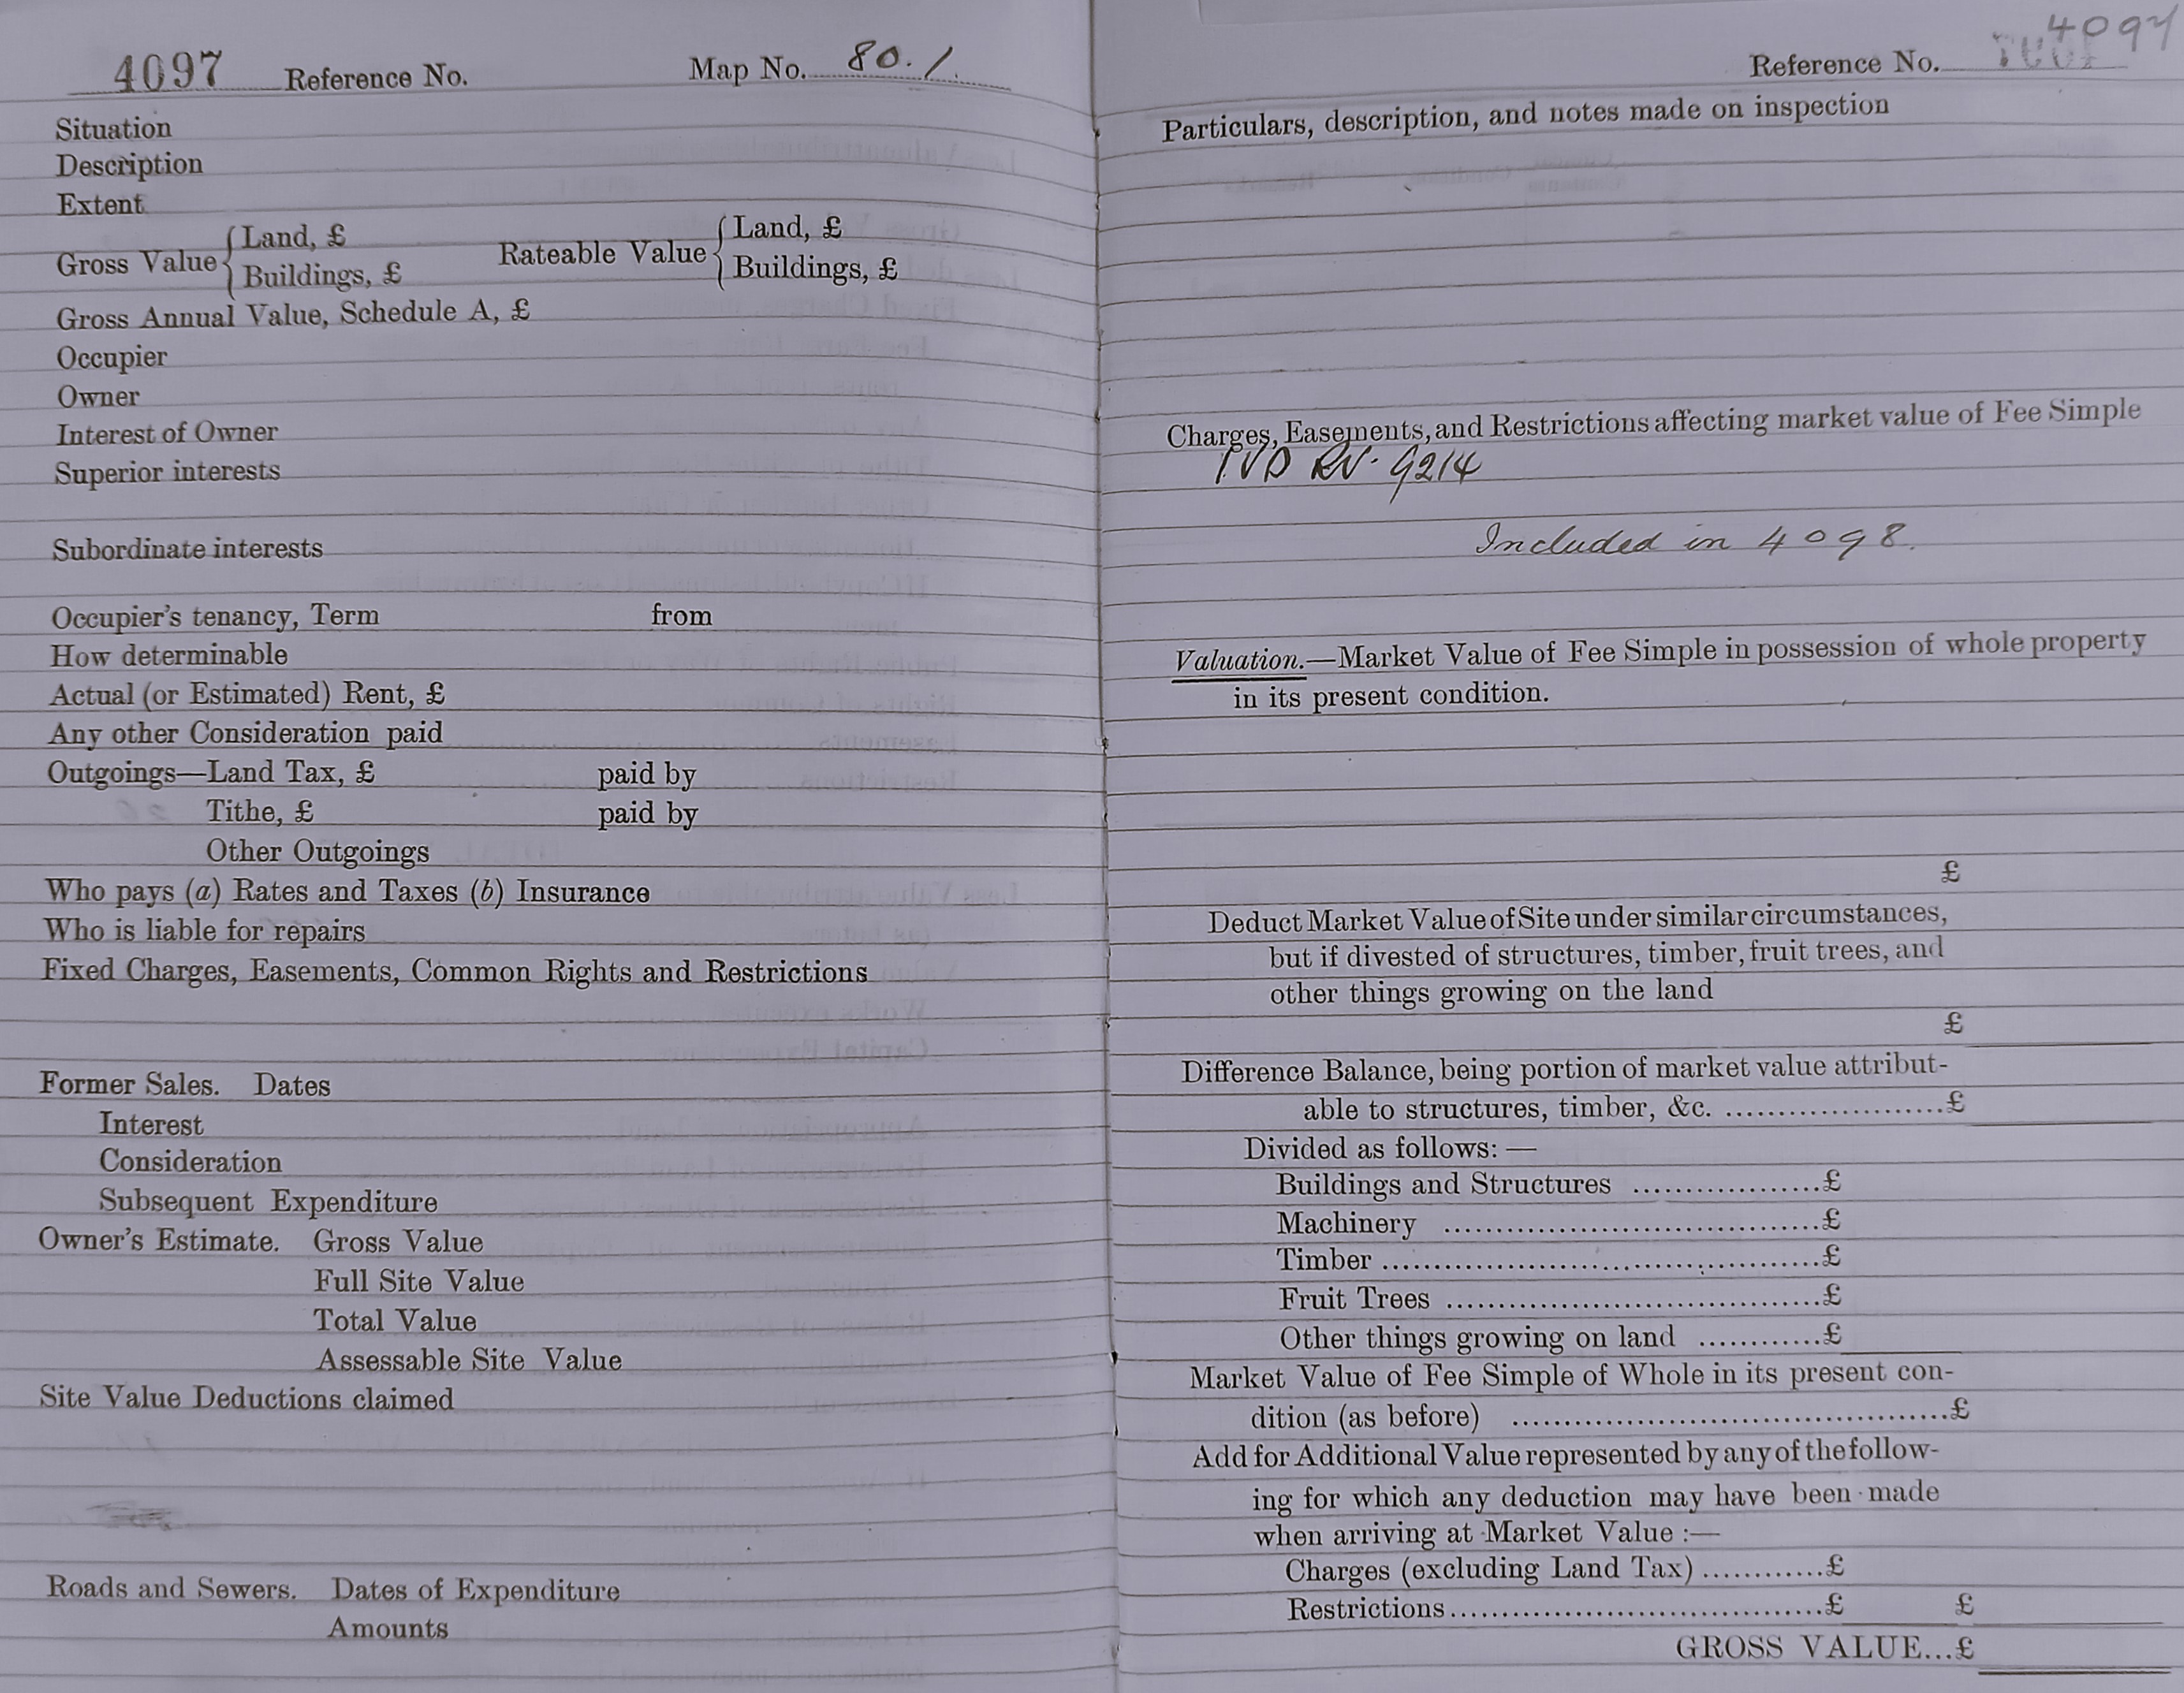 4097 Reference No. Map No. 80.1.
Situation
Description
Extent
Gross Value { Land, £ Rateable Value { Land, £
Buildings, £ Buildings, £
Gross Annual Value, Schedule A, £
Occupier
Owner
Interest of Owner
Superior interests
Subordinate interests
Occupier's tenancy, Term from
How determinable
Actual (or Estimated) Rent, £
Any other Consideration paid
Outgoings—Land Tax, £ paid by
Tithe, £ paid by
Other Outgoings
Who pays (a) Rates and Taxes (b) Insurance
Who is liable for repairs
Fixed Charges, Easements, Common Rights and Restrictions
Former Sales. Dates
Interest
Consideration
Subsequent Expenditure
Owner's Estimate. Gross Value
Full Site Value
Total Value
Assessable Site Value
Site Value Deductions claimed
Roads and Sewers. Dates of Expenditure
Amounts
Reference No. 4097
Particulars, description, and notes made on inspection
Charges, Easements, and Restrictions affecting market value of Fee Simple
9214
Included in 4098.
Valuation.—Market Value of Fee Simple in possession of whole property
in its present condition.
£
Deduct Market Value of Site under similar circumstances,
but if divested of structures, timber, fruit trees, and
other things growing on the land
£
Difference Balance, being portion of market value attribut-
able to structures, timber, &c. .....................£
Divided as follows: —
Buildings and Structures ..................£
Machinery ....................................£
Timber ..........................................£
Fruit Trees ....................................£
Other things growing on land ............£
Market Value of Fee Simple of Whole in its present con-
dition (as before) ..........................................£
Add for Additional Value represented by any of the follow-
ing for which any deduction may have been made
when arriving at Market Value :—
Charges (excluding Land Tax) ............£
Restrictions ....................................£ £
GROSS VALUE...£